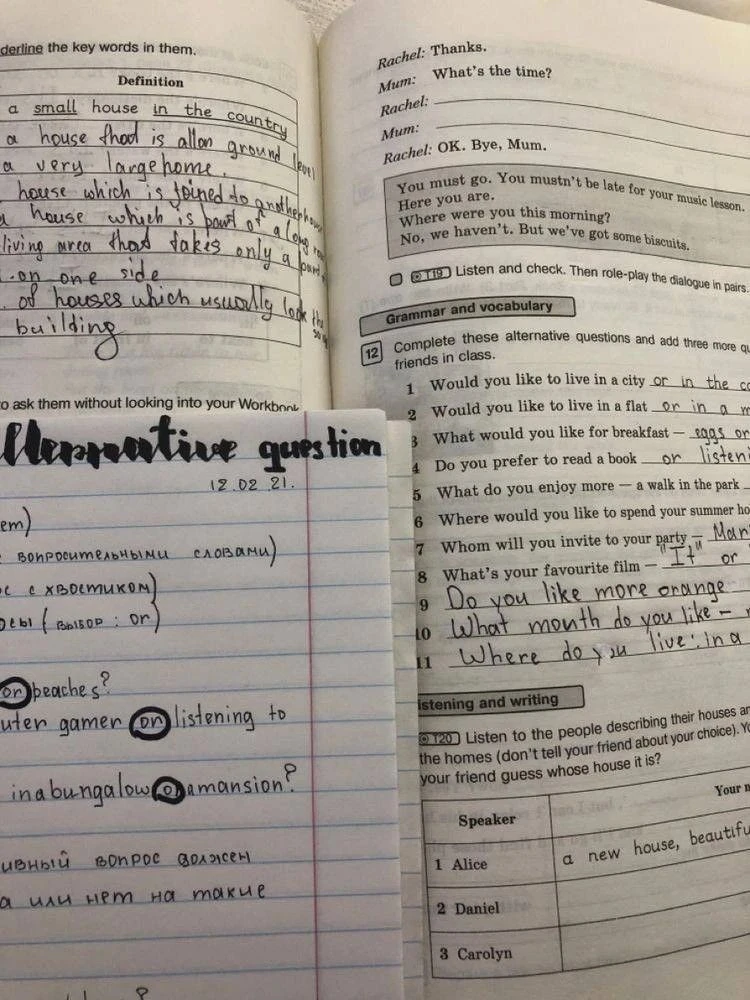 derline the key words in them.
Definition
a small house in the country
a house that is all on ground level
a very large home.
house which is joined to another house
a house which is part of a long row
living area that takes only a part
on one side
of houses which usually look the same
building
o ask them without looking into your Workbook
Rachel: Thanks.
Mum: What's the time?
Rachel:
Mum:
Rachel: OK. Bye, Mum.
You must go. You mustn't be late for your music lesson.
Here you are.
Where were you this morning?
No, we haven't. But we've got some biscuits.
T19 Listen and check. Then role-play the dialogue in pairs.
Grammar and vocabulary
12 Complete these alternative questions and add three more qu
friends in class.
1 Would you like to live in a city or in the co
2 Would you like to live in a flat or in a m
3 What would you like for breakfast — eggs or
4 Do you prefer to read a book or listeni
5 What do you enjoy more — a walk in the park
6 Where would you like to spend your summer ho
7 Whom will you invite to your party — Mari
8 What's your favourite film — "It" or
9 Do you like more orange
10 What month do you like –
11 Where do you live: in a
istening and writing
T20 Listen to the people describing their houses an
the homes (don't tell your friend about your choice). Yo
your friend guess whose house it is?
Speaker
Your n
1 Alice
a new house, beautifu
2 Daniel
3 Carolyn
Alternative question
12.02.21.
ет)
с вопросительными словами)
ос с хвостиком)
осы (выбор: or)
or peaches?
uter gamer or listening to
in a bungalow or a mansion?
ивный вопрос должен
а или нет на такие